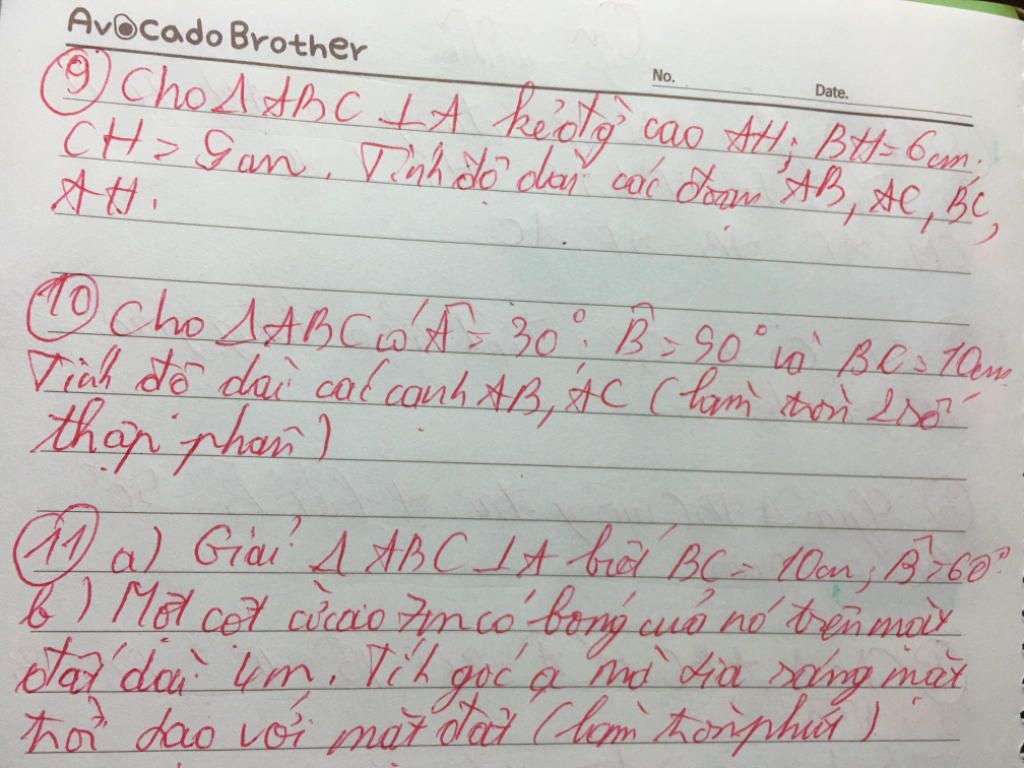 Avocado Brother
No. Date.
9 Cho Δ ABC ⊥ A kẻ đg cao AH; BH = 6cm;
CH = 9cm. Tính độ dài các đoạn AB, AC, BC,
AH.
10 Cho Δ ABC có Â = 30°; B̂ = 90° và BC = 10cm
Tính độ dài các cạnh AB, AC (làm tròn 2 số
thập phân)
11 a) Giải Δ ABC ⊥ A biết BC = 10cm; B̂ = 60°
b) Một cột cờ cao 7m có bóng của nó trên mặt
đất dài 4m. Tính góc α mà tia sáng mặt
trời tạo với mặt đất (làm tròn phút)